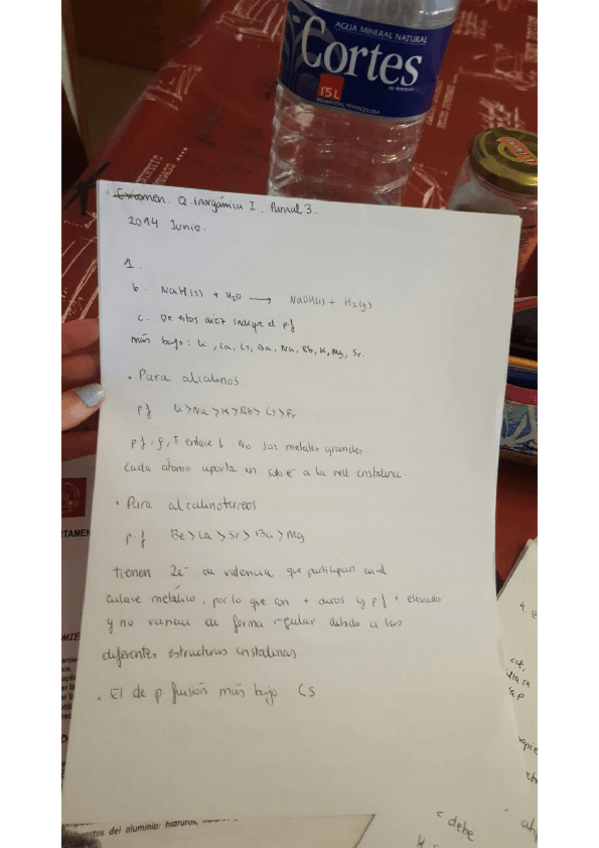 AGUA MINERAL NATURAL
Cortes
1'5 L
Examen. Q. Inorgánica I. Parcial 3.
2014 Junio.
1.
b. NaH(s) + H2O → NaOH(s) + H2(g)
c. De estos diez indique el pf
más bajo: Li, Ca, Cs, Ba, Na, Rb, K, Mg, Sr.
• Para alcalinos
pf Li>Na>K>Rb>Cs>Fr
pf, ρ, F enlace ↓ No son metales grandes.
Cada átomo aporta un solo e⁻ a la red cristalina.
• Para alcalinotérreos
p.f Be>Ca>Sr>Ba>Mg
tienen 2e⁻ de valencia que participan en el
enlace metálico, por lo que son + duros y pf + elevado
y no varían de forma regular debido a las
diferentes estructuras cristalinas.
• El de p. fusión más bajo Cs
tos del aluminio: hidruros,
c debe